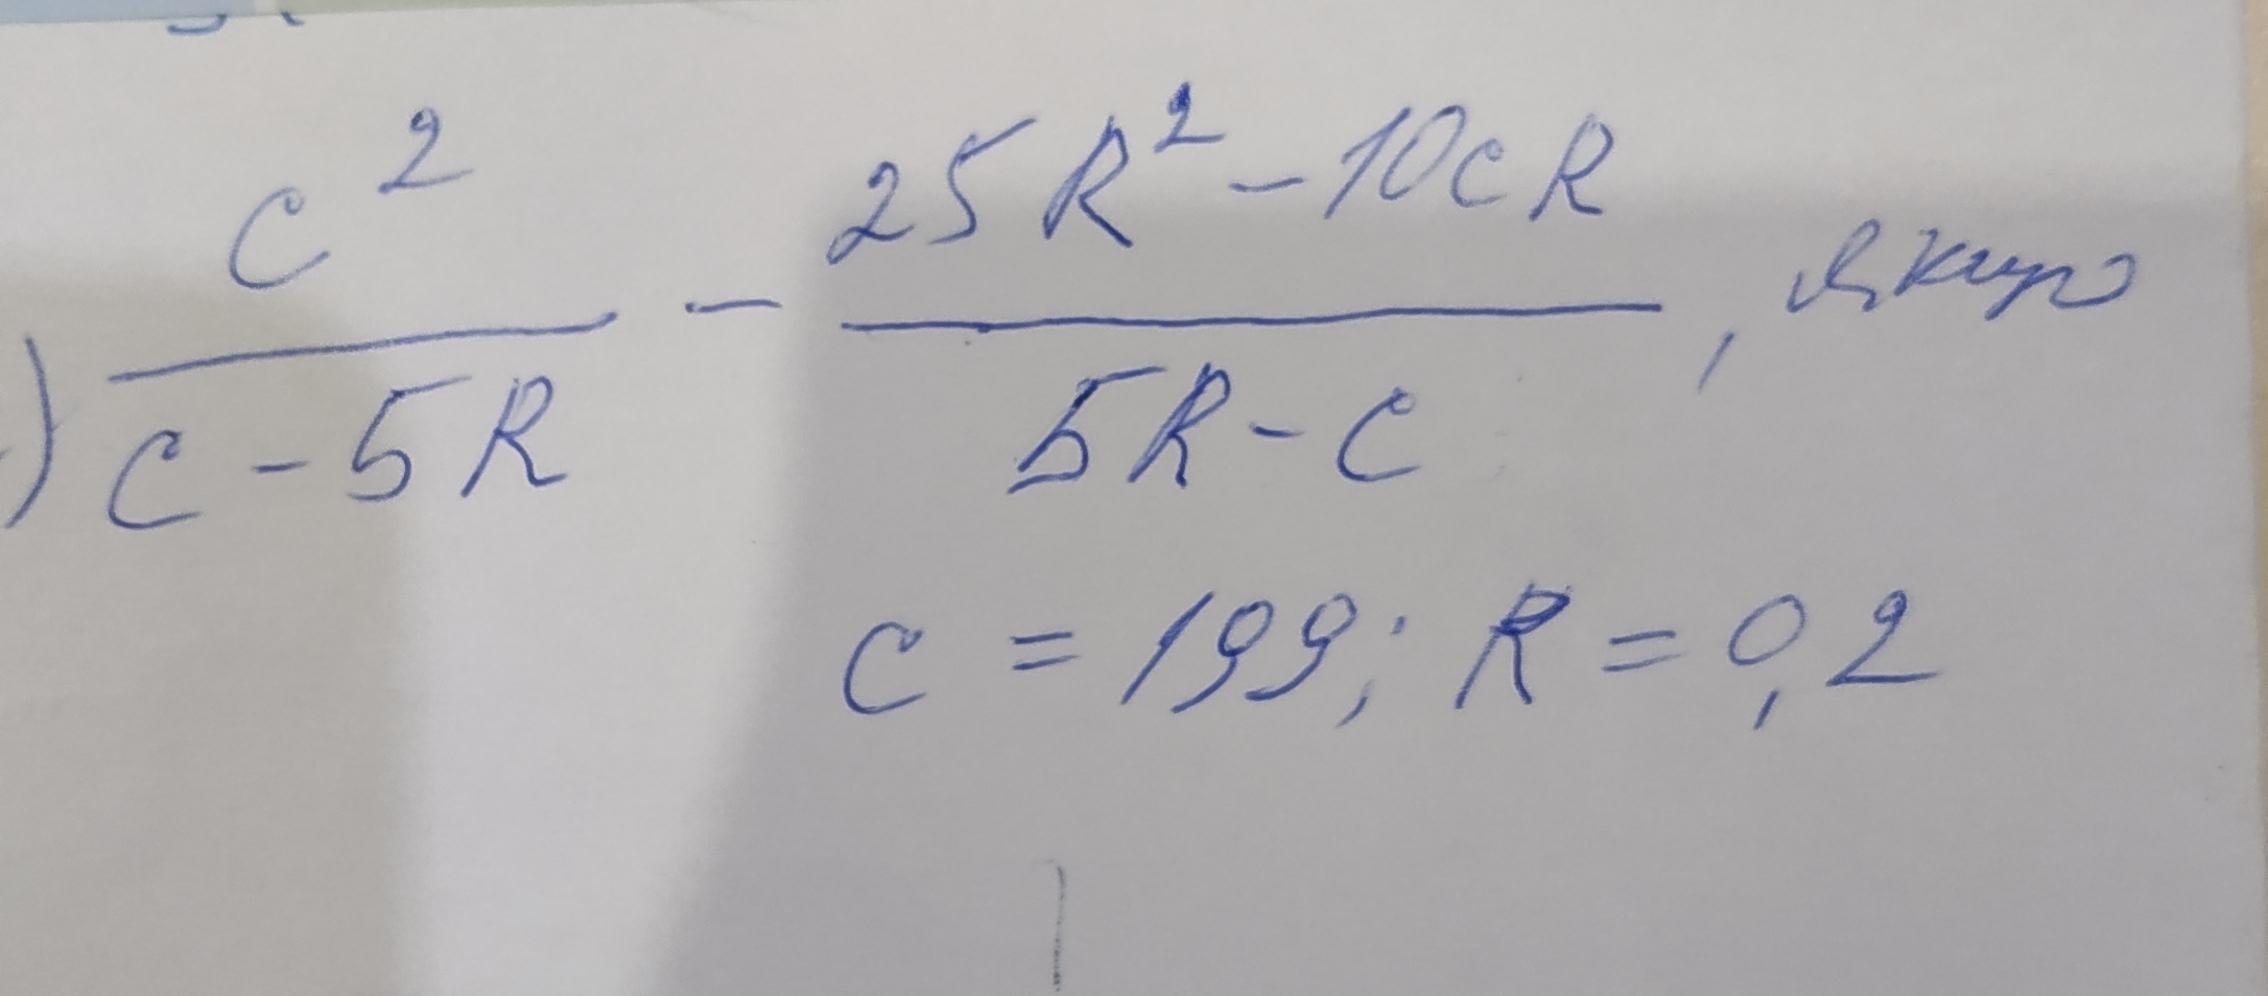 ) c² / (c - 5R) - (25R² - 10cR) / (5R - c), якщо
c = 199; R = 0,2